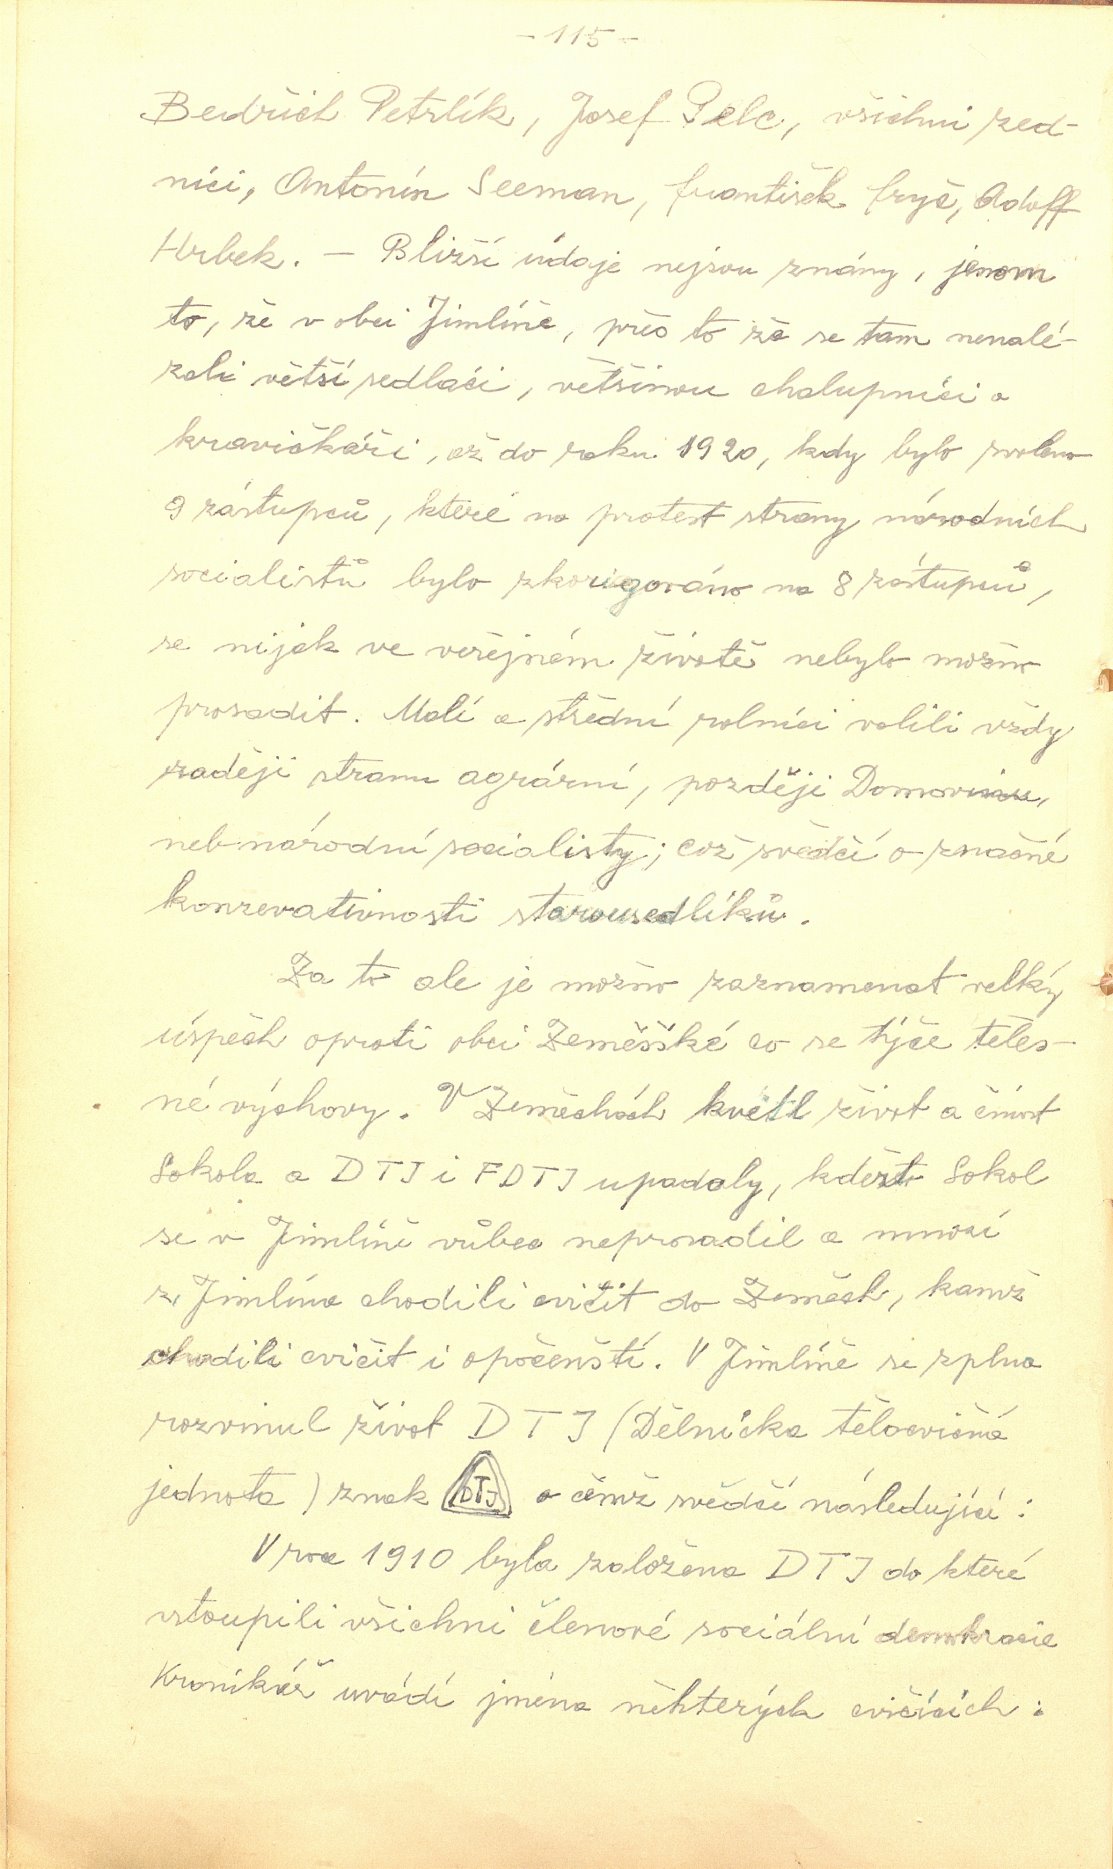 - 115 -
Bedřich Petrlík, Josef Pelc, všichni zed-
níci, Antonín Seeman, František Fryč, Adolf
Hrbek. - Bližší údaje nejsou známy, jenom
to, že v obci Jimlíně, přes to že se tam nenalé-
zali větší sedláci, většinou chalupníci a
kravičkáři, až do roku 1920, kdy bylo zvoleno
9 zástupců, které na protest strany národních
socialistů bylo zkorigováno na 8 zástupců,
se nijak ve veřejném životě nebylo možno
prosadit. Malí a střední rolníci volili vždy
raději stranu agrární, později Domovinu,
neb národní socialisty; což svědčí o značné
konzervativnosti starousedlíků.
Za to ale je možno zaznamenat velký
úspěch oproti obci Zeměšské co se týče těles-
né výchovy. V Zeměchách kvetl život a činnost
Sokola a DTJ i FDTJ upadaly, kdežto Sokol
se v Jimlíně vůbec neprosadil a mnozí
z Jimlína chodili cvičit do Zeměch, kamž
chodili cvičit i opočenští. V Jimlíně se zplna
rozvinul život DTJ (Dělnická tělocvičná
jednota) znak DTJ o čemž svědčí následující:
V roce 1910 byla založena DTJ do které
vstoupili všichni členové sociální demokracie
Kronikář uvádí jména některých cvičících: